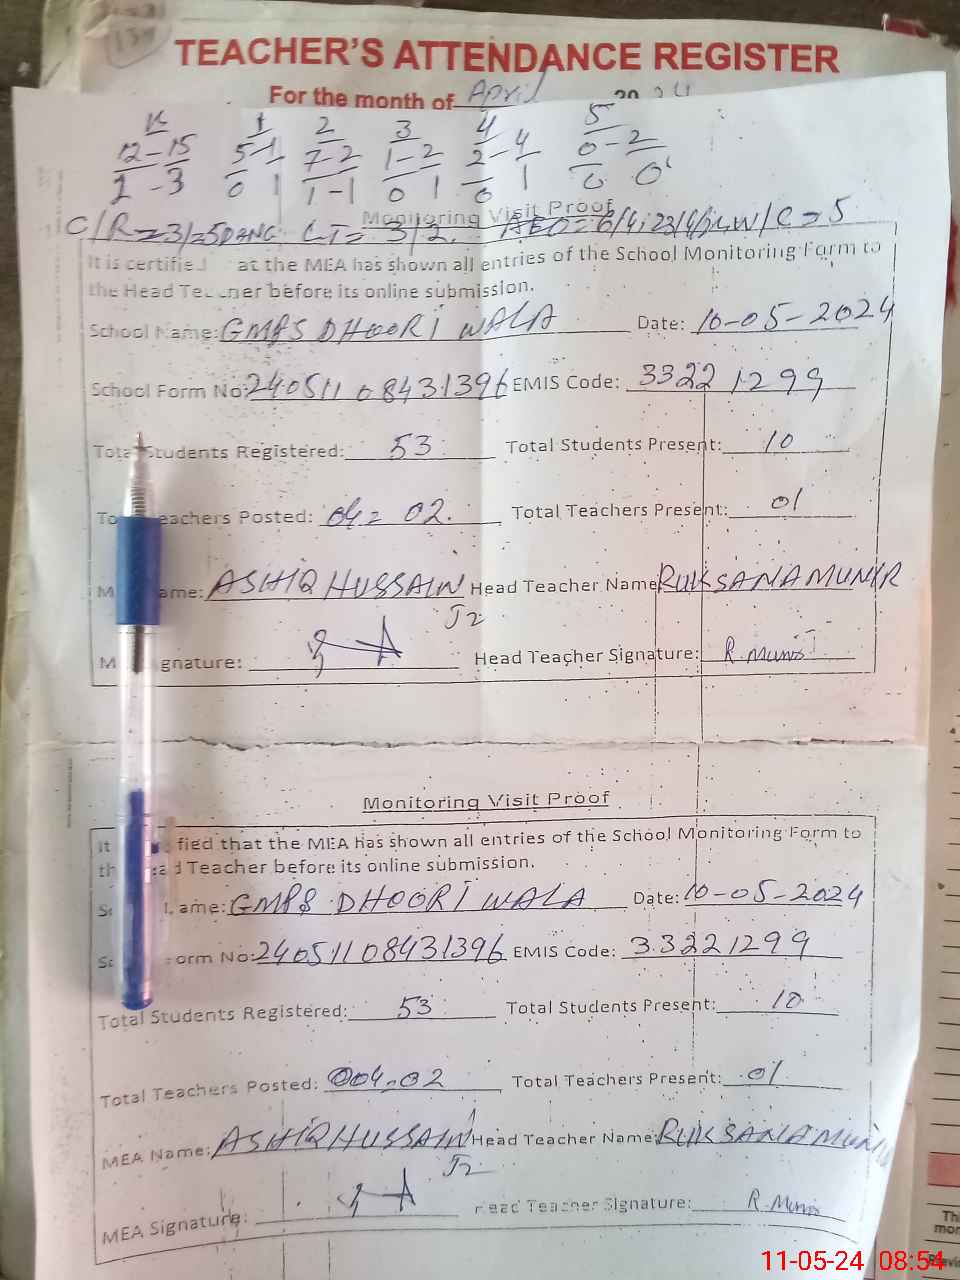 134
TEACHER'S ATTENDANCE REGISTER
For the month of April 2024
K 1 2 3 4 5
12-15 5-1 7-2 1-2 2-4 0-2
2-3 0 1 1-1 0 1 0 1 0 0
Monitoring Visit Proof
C/R=3/=5DANG LT= 3/2. AEO=6/4,23/4/24, W/C=5
It is certified at the MEA has shown all entries of the School Monitoring Form to
the Head Teacher before its online submission.
School Name: GMPS DHOORI WALA Date: 10-05-2024
School Form No: 24051108431396 EMIS Code: 33221299
Total Students Registered: 53 Total Students Present: 10
To eachers Posted: 04= 02. Total Teachers Present: 01
M ame: ASHIQ HUSSAIN Head Teacher Name RUKSANA MUNIR
J2
M gnature: Head Teacher Signature: R.Munir
Monitoring Visit Proof
It fied that the MEA has shown all entries of the School Monitoring Form to
th ad Teacher before its online submission.
Sc ame: GMPS DHOORI WALA Date: 10-05-2024
Sc orm No: 24051108431396 EMIS Code: 33221299
Total Students Registered: 53 Total Students Present: 10
Total Teachers Posted: 04=02 Total Teachers Present: 01
MEA Name: ASHIQ HUSSAIN Head Teacher Name: RUKSANA MUNIR
J2
MEA Signature: Head Teacher Signature: R.Munir
11-05-24 08:54